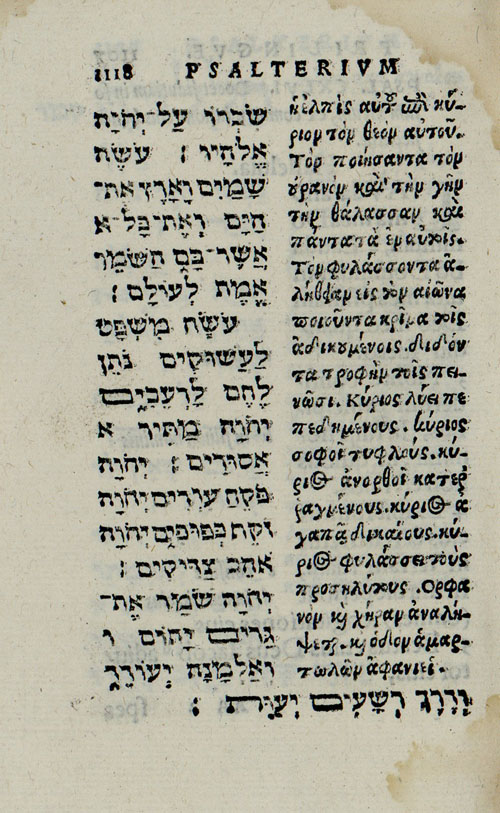 1118 PSALTERIVM
שִׂבְרוֹ עַל־יְהוָֹה
אֱלֹהָיו : עֹשֶׂה
שָׁמַיִם וָאָרֶץ אֶת־
הַיָּם וְאֶת־כָּל־א
אֲשֶׁר־בָּם הַשֹּׁמֵר
אֱמֶת לְעוֹלָם :
עֹשֶׂה מִשְׁפָּט
לַעֲשׁוּקִים נֹתֵן
לֶחֶם לָרְעֵבִים
יְהוָֹה מַתִּיר א
אֲסוּרִים : יְהוָֹה
פֹּקֵחַ עִוְרִים יְהוָֹה
זֹקֵף כְּפוּפִים יְהוָֹה
אֹהֵב צַדִּיקִים :
יְהוָֹה שֹׁמֵר אֶת־
גֵּרִים יָתוֹם ו
וְאַלְמָנָה יְעוֹדֵד
וְדֶרֶךְ רְשָׁעִים יְעַוֵּת :
ἡ ἐλπὶς αὐτοῦ ἐπὶ κύ-
ριον τὸν θεὸν αὐτοῦ.
Τὸν ποιήσαντα τὸν
οὐρανὸν καὶ τὴν γῆν
τὴν θάλασσαν καὶ
πάντα τὰ ἐν αὐτοῖς.
Τὸν φυλάσσοντα ἀ-
λήθειαν εἰς τὸν αἰῶνα
ποιοῦντα κρίμα τοῖς
ἀδικουμένοις. διδόν
τα τροφὴν τοῖς πει-
νῶσι. κύριος λύει πε
πεδημένους. κύριος
σοφοῖ τυφλούς. κύ-
ριος ἀνορθοῖ κατερ
ραγμένους. κύριος ἀ
γαπᾷ δικαίους. κύ-
ριος φυλάσσει τοὺς
προσηλύτους. Ορφα
νὸν καὶ χήραν ἀναλή-
ψεται. καὶ ὁδὸν ἁμαρ-
τωλῶν ἀφανιεῖ.